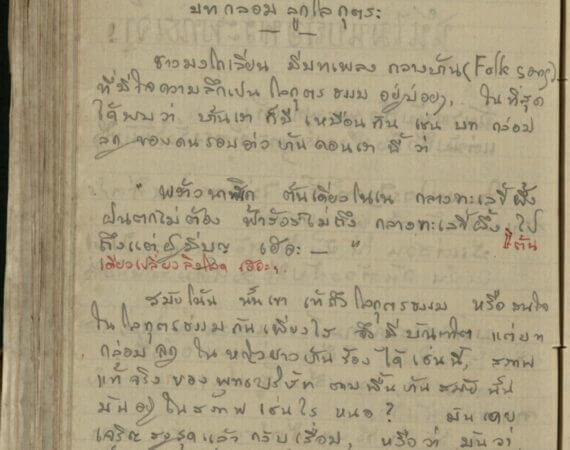 บทกล่อมลูกโลกุตระ
ชาวมงโกเลียน มีบทเพลง กลางบ้าน (Folk song)
ที่มีใจความลึกเป็นโลกุตรธรรม อยู่บ่อยๆ, ในที่สุด
ได้พบว่า บ้านเรา ก็มี เหมือนกัน เช่น บท กล่อม
ลูก ของคนรอบอ่าวบ้านดอนเรา มี ว่า
"พร้าวนาฬิเก ต้นเดียวโนเน กลางทะเลขี้ผึ้ง
ฝนตกไม่ต้อง ฟ้าร้องไม่ถึง กลางทะเลขี้ผึ้ง ไป
ถึงแต่ผู้มีบุญ เฮอะ — "
ต้น
เดียว เฮอะ,
สมัยโน้น นั้นเขา โลกุตรธรรม หรือ สนใจ
ในโลกุตรธรรม กันเพียงไร จึง มี แต่งบท
กล่อม ลูก ใน ร้อง ได้ เช่นนี้, สภาพ
แท้จริง ของ พุทธบริษัท ตามพื้นบ้าน สมัย นั้น
มัน อยู่ ในสภาพ เช่นไร หนอ? มันเคย
เจริญ สูงสุด แล้ว กลับ เสื่อม, หรือว่า มันว่า